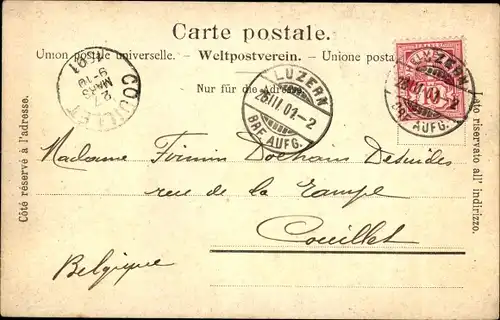 Carte postale.
Union postale universelle. - Weltpostverein. - Unione posta
Nur für die Adresse.
COUILLET
9-10
27
MARS
LUZERN
26 III 01.-2
BRF. AUFG.
LUZERN
BRF. AUFG.
10
Côté réservé à l'adresse.
Lato riservato all' indirizzo.
Madame Firmin Dochain
rue de la Rampe
Couillet
Belgique